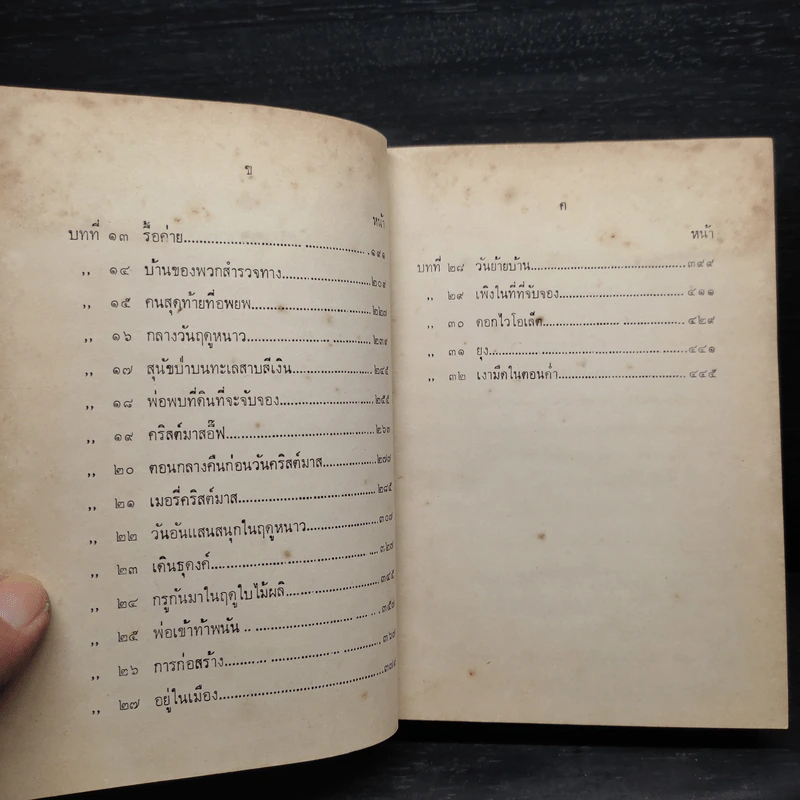 ข
หน้า
บทที่ ๑๓ รื้อค่าย........................ ๑๙๑
,, ๑๔ บ้านของพวกสำรวจทาง........................ ๒๐๙
,, ๑๕ คนสุดท้ายที่อพยพ........................
,, ๑๖ กลางวันฤดูหนาว........................ ๒๓๙
,, ๑๗ สุนัขป่าบนทะเลสาบสีเงิน........................ ๒๔๕
,, ๑๘ พ่อพบที่ดินที่จะจับจอง........................ ๒๕๕
,, ๑๙ คริสต์มาสอี๊ฟ........................ ๒๖๓
,, ๒๐ ตอนกลางคืนก่อนวันคริสต์มาส........................ ๒๗๗
,, ๒๑ เมอรี่คริสต์มาส........................ ๒๘๕
,, ๒๒ วันอันแสนสนุกในฤดูหนาว........................ ๓๐๗
,, ๒๓ เดินธุดงค์........................ ๓๒๗
,, ๒๔ กรูกันมาในฤดูใบไม้ผลิ........................ ๓๔๕
,, ๒๕ พ่อเข้าท้าพนัน........................
,, ๒๖ การก่อสร้าง........................ ๓๖๗
,, ๒๗ อยู่ในเมือง........................
ค
หน้า
บทที่ ๒๘ วันย้ายบ้าน........................ ๓๙๙
,, ๒๙ เพิงในที่ที่จับจอง........................ ๔๑๑
,, ๓๐ ดอกไวโอเล็ต........................ ๔๒๙
,, ๓๑ ยุง........................ ๔๔๑
,, ๓๒ เงามืดในตอนค่ำ........................ ๔๔๕